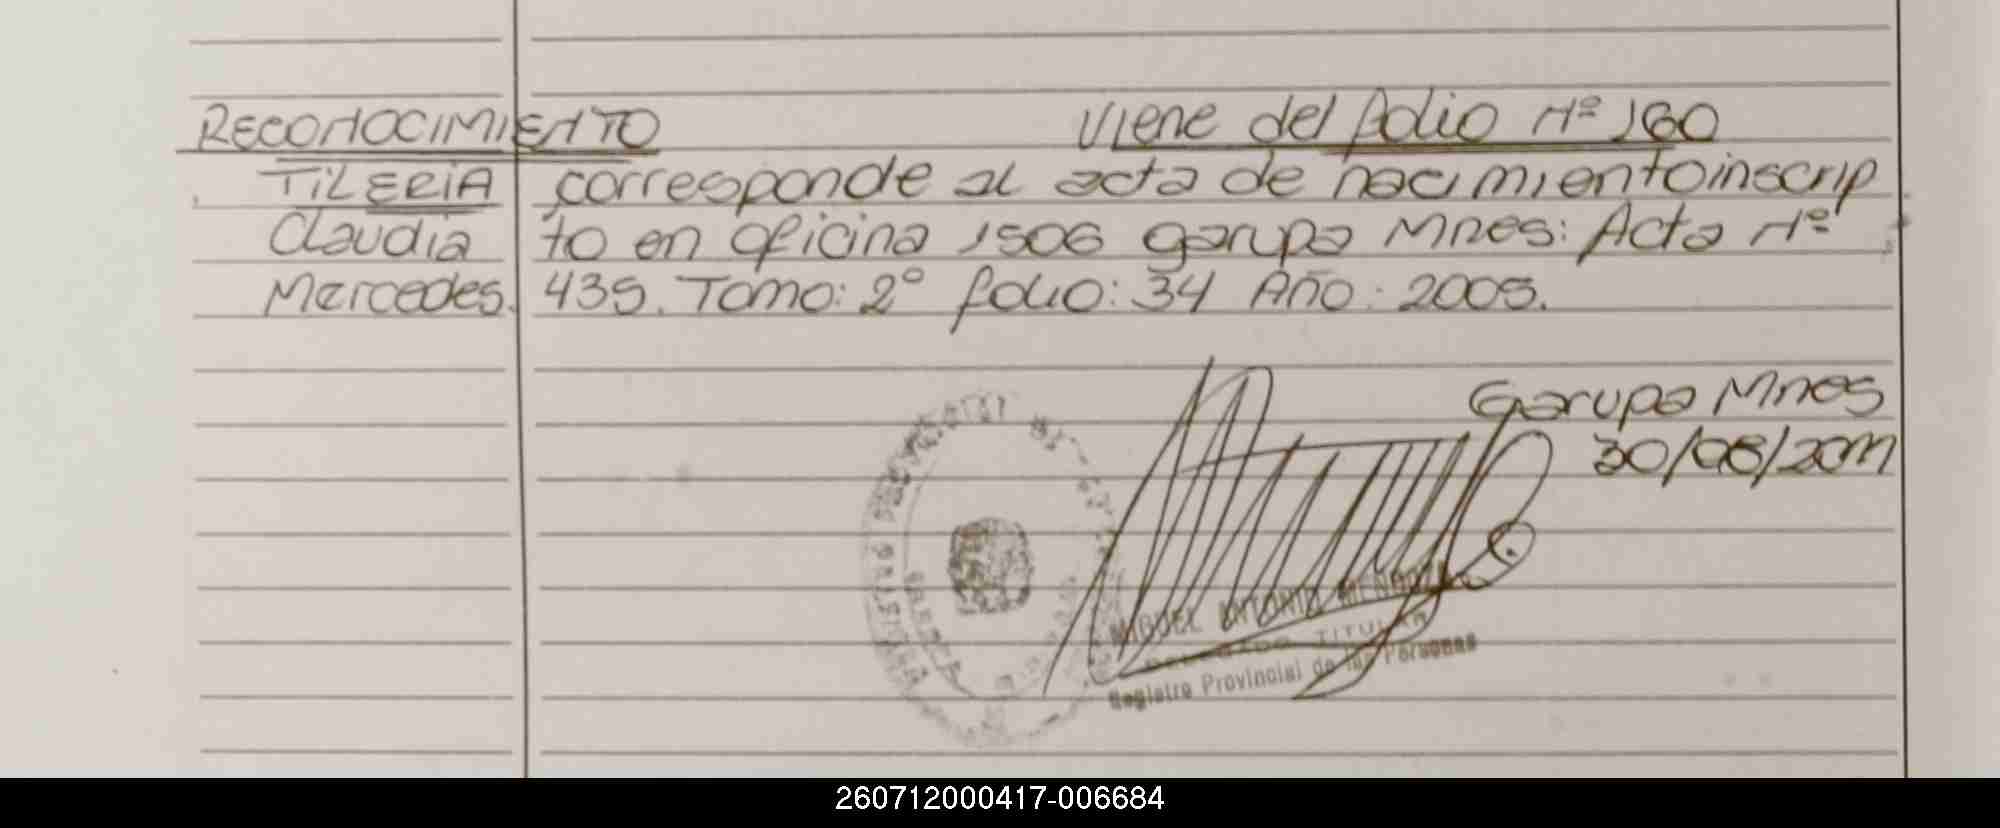 RECONOCIMIENTO Viene del folio Nº 160
TILERIA corresponde al acta de nacimiento inscrip
Claudia to en oficina 1506 garupa Mnes: Acta Nº
Mercedes. 435. Tomo: 2º folio: 34 Año: 2005.
Garupa Mnes
30/08/2011
MIGUEL ANTONIO MENDOZA
TITULAR
Registro Provincial de las Personas
260712000417-006684